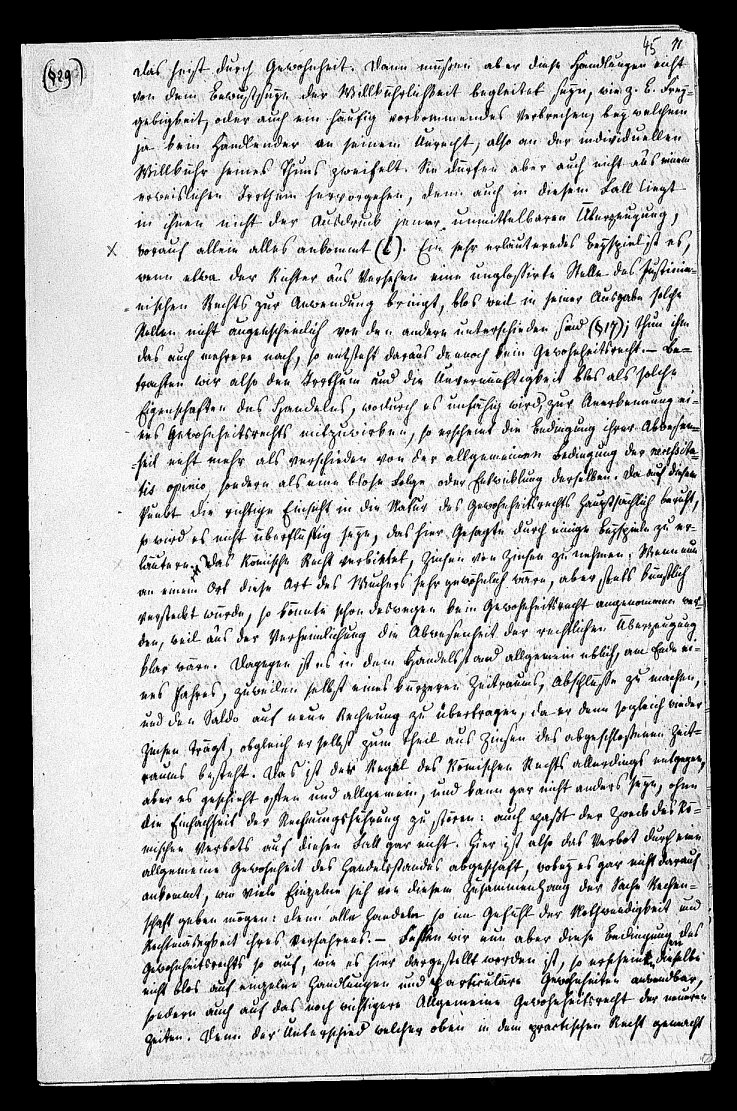 45 11
(§29)
das heist durch Gewohnheit. Dann müßen aber diese Handlungen nicht
von dem Bewustseyn der Willkührlichkeit begleitet seyn, wie z. B. Frey-
gebigkeit, oder auch ein häufig vorkommendes Verbrechen, bey welchem
ja kein Handlender an seinem Unrecht, also an der individuellen
Willkühr seines Thuns zweifelt. Sie dürfen aber auch nicht aus einem
erweislichen Irrthum hervorgehen, denn auch in diesem Fall liegt
in ihnen nicht der Ausdruck jener unmittelbaren Überzeugung,
x worauf allein alles ankommt (l). Ein sehr erläuterndes Beyspiel ist es,
wenn etwa der Richter aus Versehen eine unglossirte Stelle des Justinia-
nischen Rechts zur Anwendung bringt, blos weil in seiner Ausgabe solche
Stellen nicht augenscheinlich von den andern unterschieden sind (§17); thun ihm
das auch mehrere nach, so entsteht daraus dennoch kein Gewohnheitsrecht. — Be-
trachten wir also den Irrthum und die Unvernünftigkeit blos als solche
Eigenschaften des Handelns, wodurch es unfähig wird, zur Anerkennung ei-
nes Gewohnheitsrechts mitzuwirken, so erscheint die Bedingung ihrer Abwesen-
heit nicht mehr als verschieden von der allgemeinen Bedingung der necessita-
tis opinio sondern als eine blose Folge oder Entwicklung derselben. Da auf diesem
Punkt die richtige Einsicht in die Natur des Gewohnheitsrechts hauptsächlich beruht,
so wird es nicht überflüssig seyn, das hier Gesagte durch einige Beyspiele zu er-
läutern. x Das Römische Recht verbietet, Zinsen von Zinsen zu nehmen. Wenn nun
an einem Ort diese Art des Wuchers sehr gewöhnlich wäre, aber stets künstlich
versteckt würde, so könnte schon deswegen kein Gewohnheitsrecht angenommen wer-
den, weil aus der Verheimlichung die Abwesenheit der rechtlichen Überzeugung
klar wäre. Dagegen ist es in dem Handelsstand allgemein üblich, am Ende ei-
nes Jahres, zuweilen selbst eines kürzeren Zeitraums, Abschlüsse zu machen,
und den Saldo auf neue Rechnung zu übertragen, da er denn sogleich wieder
Zinsen trägt, obgleich er selbst zum Theil aus Zinsen des abgeschlossenen Zeit-
raums besteht. Das ist der Regel des Römischen Rechts allerdings entgegen,
aber es geschieht offen und allgemein, und kann gar nicht anders seyn, ohne
die Einfachheit der Rechnungsführung zu stören: auch paßt der Zweck des Rö-
mischen Verbots auf diesen Fall gar nicht. Hier ist also das Verbot durch eine
allgemeine Gewohnheit des Handelsstandes abgeschafft, wobey es gar nicht darauf
ankommt, wie viele Einzelne sich von diesem Zusammenhang der Sache Rechen-
schaft geben mögen: denn alle handeln so im Gefühl der Nothwendigkeit und
Rechtmäsigkeit ihres Verfahrens. — Fassen wir nun aber diese Bedingungen des
Gewohnheitsrechts so auf, wie es hier dargestellt worden ist, so erscheinen dieselben
nicht blos auf einzelne Handlungen und particuläre Gewohnheiten anwendbar,
sondern auch auf das noch wichtigere Allgemeine Gewohnheitsrecht der neueren
Zeiten. Denn der Unterschied welcher oben in dem practischen Recht gemacht